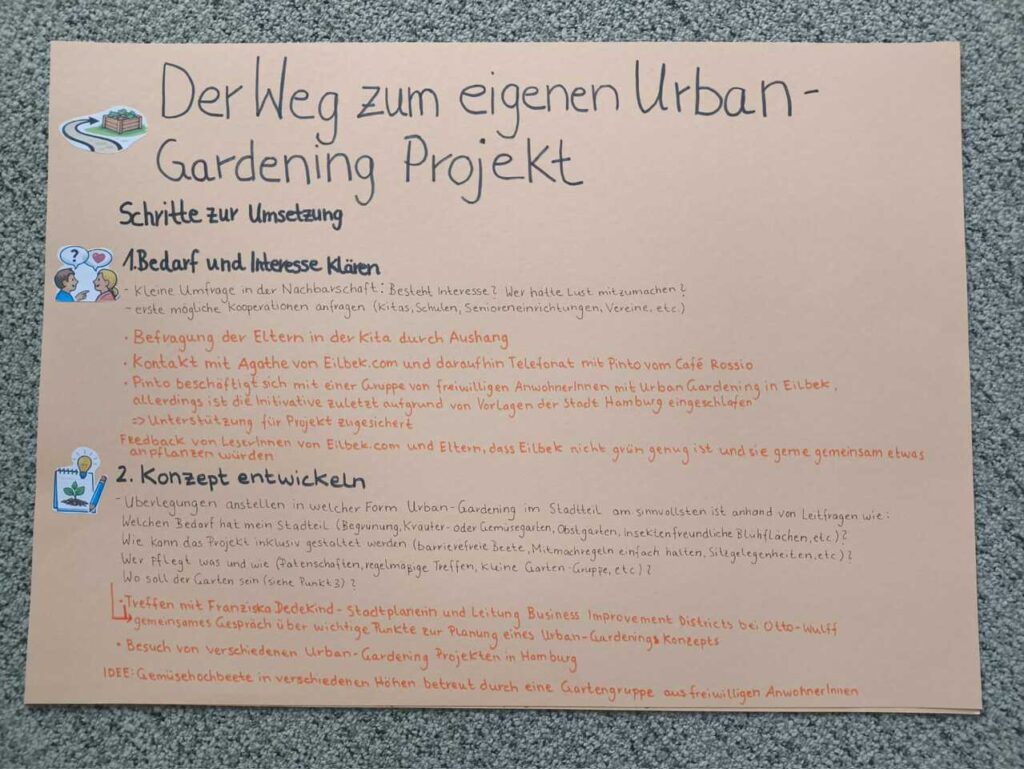 Der Weg zum eigenen Urban-
Gardening Projekt
Schritte zur Umsetzung
?
1. Bedarf und Interesse klären
- Kleine Umfrage in der Nachbarschaft: Besteht Interesse? Wer hätte Lust mitzumachen?
- erste mögliche Kooperationen anfragen (Kitas, Schulen, Senioreneinrichtungen, Vereine, etc.)
• Befragung der Eltern in der Kita durch Aushang
• Kontakt mit Agathe von Eilbek.com und daraufhin Telefonat mit Pinto vom Café Rossio
• Pinto beschäftigt sich mit einer Gruppe von freiwilligen AnwohnerInnen mit Urban Gardening in Eilbek,
allerdings ist die Initivative zuletzt aufgrund von Vorlagen der Stadt Hamburg eingeschlafen
⇒ Unterstützung für Projekt zugesichert
Feedback von LeserInnen von Eilbek.com und Eltern, dass Eilbek nicht grün genug ist und sie gerne gemeinsam etwas
anpflanzen würden
2. Konzept entwickeln
- Überlegungen anstellen in welcher Form Urban-Gardening im Stadtteil am sinnvollsten ist anhand von Leitfragen wie:
Welchen Bedarf hat mein Stadteil (Begrünung, Kräuter- oder Gemüsegarten, Obstgarten, Insektenfreundliche Blühflächen, etc.)?
Wie kann das Projekt inklusiv gestaltet werden (barrierefreie Beete, Mitmachregeln einfach halten, Sitzgelegenheiten, etc.)?
Wer pflegt was und wie (Patenschaften, regelmäßige Treffen, kleine Garten-Gruppe, etc.)?
Wo soll der Garten sein (siehe Punkt 3)?
• Treffen mit Franziska Dedekind - Stadtplanerin und Leitung Business Improvement Districts bei Otto-Wulff
gemeinsames Gespräch über wichtige Punkte zur Planung eines Urban-Gardenings Konzepts
• Besuch von verschiedenen Urban-Gardening Projekten in Hamburg
IDEE: Gemüsehochbeete in verschiedenen Höhen betreut durch eine Gartengruppe aus freiwilligen AnwohnerInnen